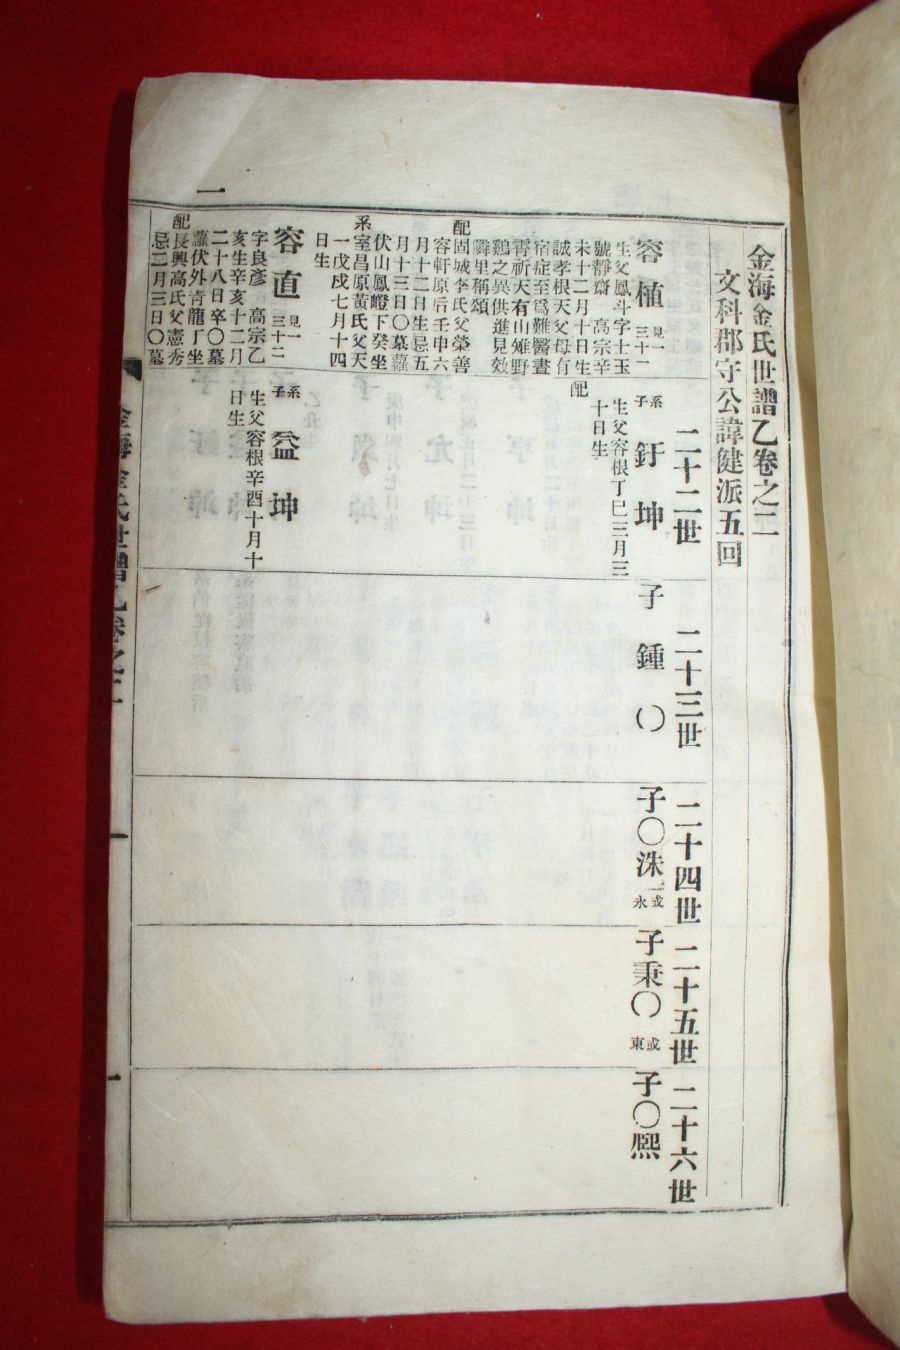 一
金海金氏世譜乙卷之二
文科郡守公諱健派五回
二十二世
二十三世
二十四世
二十五世
二十六世
容植
見一
三十二
生父鳳斗字士玉
號靜齋 高宗辛
未十二月十日生
誠孝根天父母有
宿症至爲難醫晝
霄祈天有山雉野
鷄之異供進見效
隣里稱頌
配固城李氏父榮善
容軒原后壬申六
月十二日生忌五
月十三日〇墓蘿
伏山鳳嶝下癸坐
系室昌原黃氏父天
一戊戌七月十四
日生
容直
見一
三十二
字良彥 高宗乙
亥生辛亥十二月
二十八日卒〇墓
蘿伏外靑龍丁坐
配長興高氏父憲秀
忌二月三日〇墓
系子
釪坤
生父容根丁巳三月三
十日生
配
系子
益坤
生父容根辛酉十月十
日生
子鍾〇
子〇洙
或永
子秉〇
或東
子〇熙
金海金氏世譜乙卷之二
一